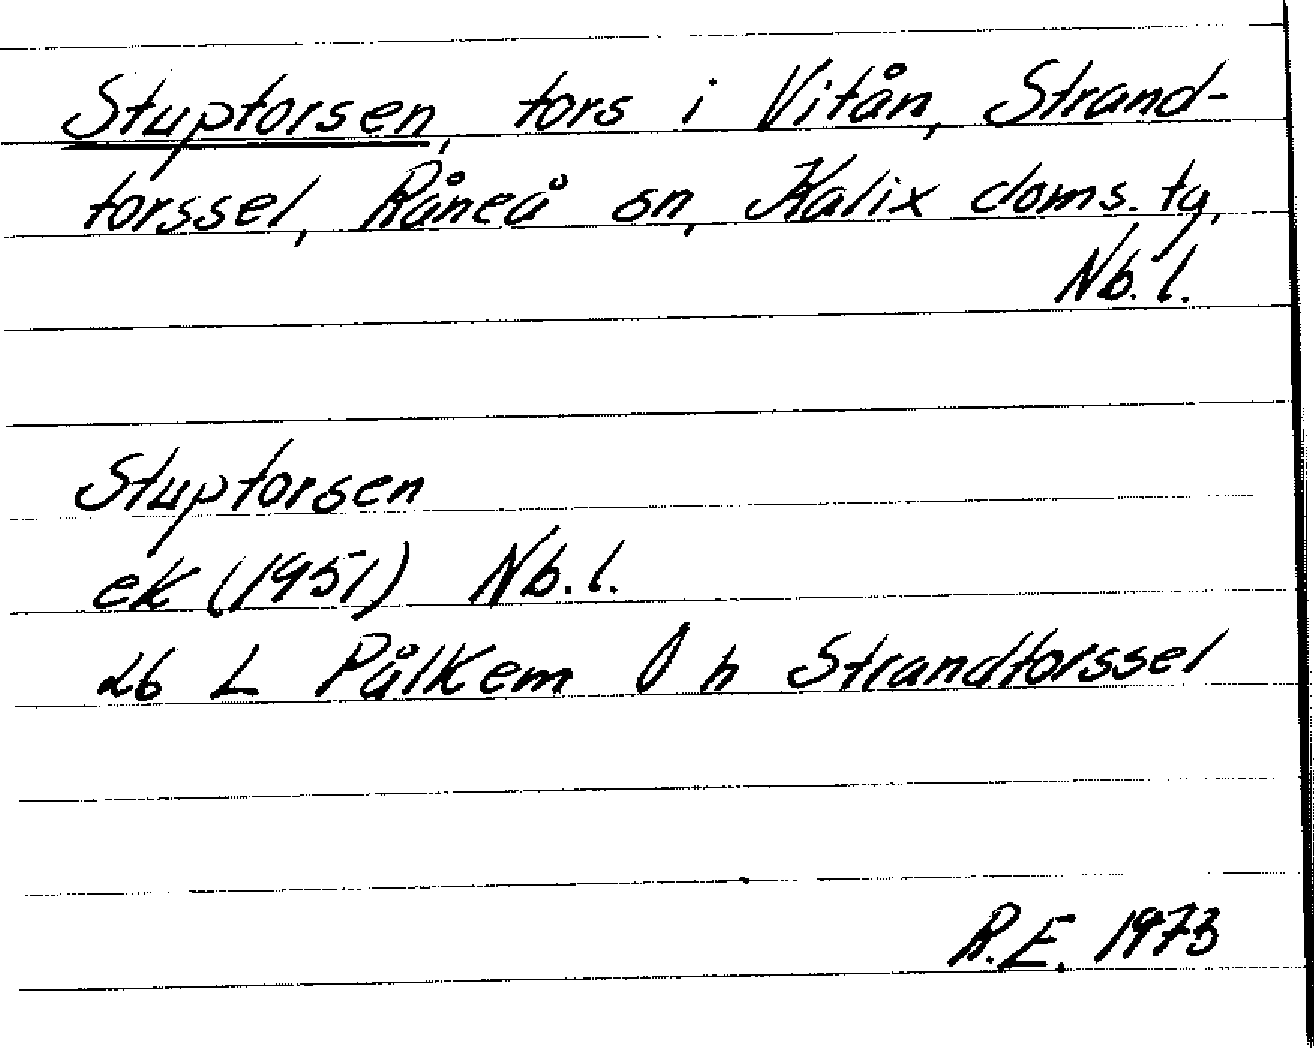 Stuptorsen, tors i Vitån, Strand-
torssel, Råneå sn, Kalix doms. tg,
Nb. l.
Stuptorsen
ek (1951) Nb. l.
db L Pålkem Ö h Strandtorssel
R.E. 1973